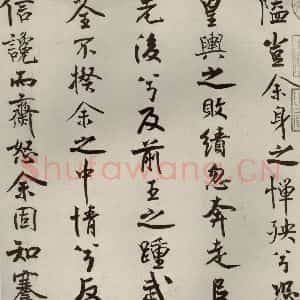 隘豈余身之憚殃兮恐
皇輿之敗績忽奔走
先後兮及前王之踵武
荃不揆余之中情兮反
信讒而齌怒余固知謇
Shufawang.CN